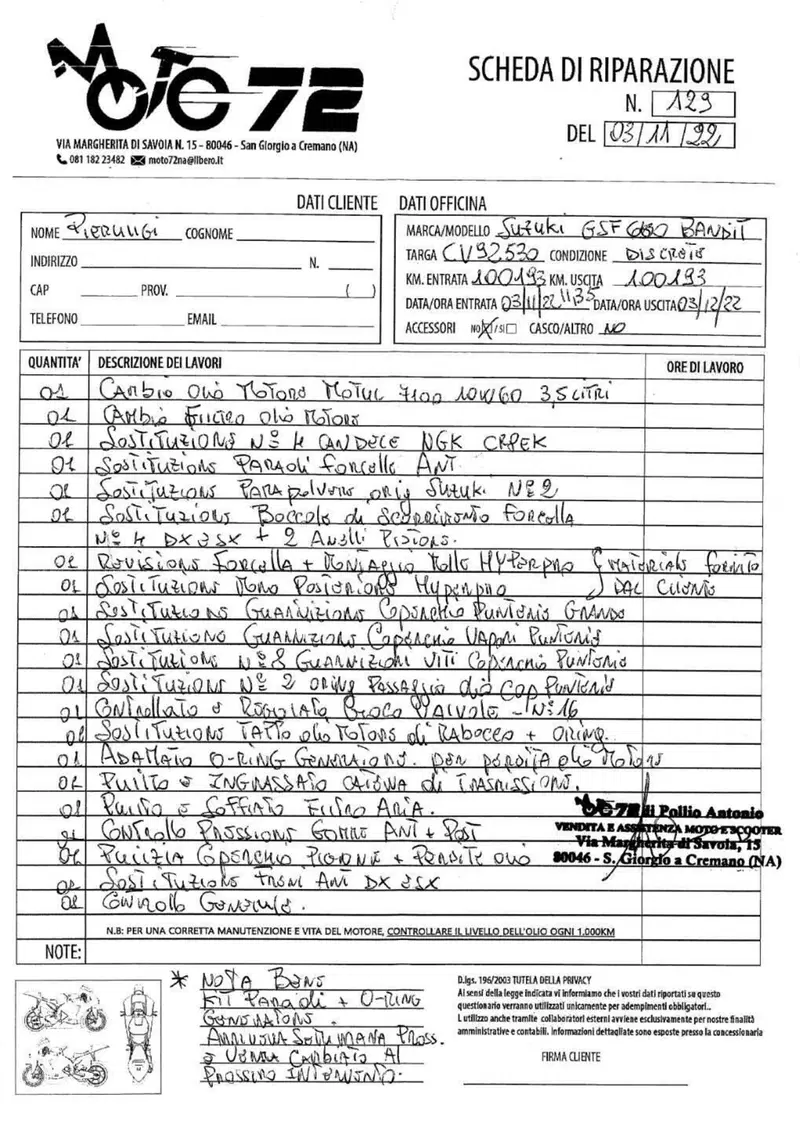 MOTO 72
VIA MARGHERITA DI SAVOIA N. 15 – 80046 - San Giorgio a Cremano (NA)
081 182 23482 moto72na@libero.it
SCHEDA DI RIPARAZIONE
N. 129
DEL 03/11/22
DATI CLIENTE
NOME PIERLUIGI COGNOME
INDIRIZZO N.
CAP PROV. ( )
TELEFONO EMAIL
DATI OFFICINA
MARCA/MODELLO SUZUKI GSF 600 BANDIT
TARGA CV92530 CONDIZIONE DISCRETO
KM. ENTRATA 100193 KM. USCITA 100193
DATA/ORA ENTRATA 03/11/22 11,35 DATA/ORA USCITA 03/12/22
ACCESSORI NO X / SI CASCO/ALTRO NO
QUANTITA' DESCRIZIONE DEI LAVORI ORE DI LAVORO
01 CAMBIO OLIO MOTORE MOTUL 7100 10W/60 3,5 LITRI
01 CAMBIO FILTRO OLIO MOTORE
01 SOSTITUZIONE N° 4 CANDELE NGK CR9EK
01 SOSTITUZIONE PARAOLI FORCELLE ANT.
01 SOSTITUZIONE PARAPOLVERE ORIG SUZUKI N° 2
01 SOSTITUZIONE BOCCOLE DI SCORRIMENTO FORCELLA
N° 4 DX E SX + 2 ANELLI PISTONE.
01 REVISIONE FORCELLA + MONTAGGIO MOLLE HYPERPRO MATERIALE FORNITO
01 SOSTITUZIONE MONO POSTERIORE HYPERPRO DAL CLIENTE
01 SOSTITUZIONE GUARNIZIONE COPERCHIO PUNTERIE GRANDE
01 SOSTITUZIONE GUARNIZIONE COPERCHIO VAPORI PUNTERIE
01 SOSTITUZIONE N° 8 GUARNIZIONI VITI COPERCHIO PUNTERIE
01 SOSTITUZIONE N° 2 ORING PASSAGGIO OLIO COP PUNTERIE
01 CONTROLLATO E REGOLATO GIOCO VALVOLE - N° 16
01 SOSTITUZIONE TAPPO OLIO MOTORE DI RABOCCO + ORING.
01 ADATTATO O-RING GENERATORE. PER PERDITA OLIO MOTORE
01 PULITO E INGRASSATO CATENA DI TRASMISSIONE.
01 PULITO E SOFFIATO FILTRO ARIA.
01 CONTROLLO PRESSIONE GOMME ANT + POST
01 PULIZIA COPERCHIO PIGNONE + PERDITE OLIO
01 SOSTITUZIONE FRENI ANT DX E SX
01 CONTROLLO GENERALE.
MOTO 72 di Pollio Antonio
VENDITA E ASSISTENZA MOTO E SCOOTER
Via Margherita di Savoia, 15
80046 - S. Giorgio a Cremano (NA)
N.B: PER UNA CORRETTA MANUTENZIONE E VITA DEL MOTORE, CONTROLLARE IL LIVELLO DELL'OLIO OGNI 1.000KM
NOTE:
* NOTA BENE
KIT PARAOLI + O-RING
GENERATORE.
ARRIVERÀ SETTIMANA PROSS.
E VERRÀ CAMBIATO AL
PROSSIMO INTERVENTO.
D.lgs. 196/2003 TUTELA DELLA PRIVACY
Ai sensi della legge indicata vi informiamo che i vostri dati riportati su questo
questionario verranno utilizzati unicamente per adempimenti obbligatori..
L utilizzo anche tramite collaboratori esterni avviene esclusivamente per nostre finalità
amministrative e contabili. Informazioni dettagliate sono esposte presso la concessionaria
FIRMA CLIENTE